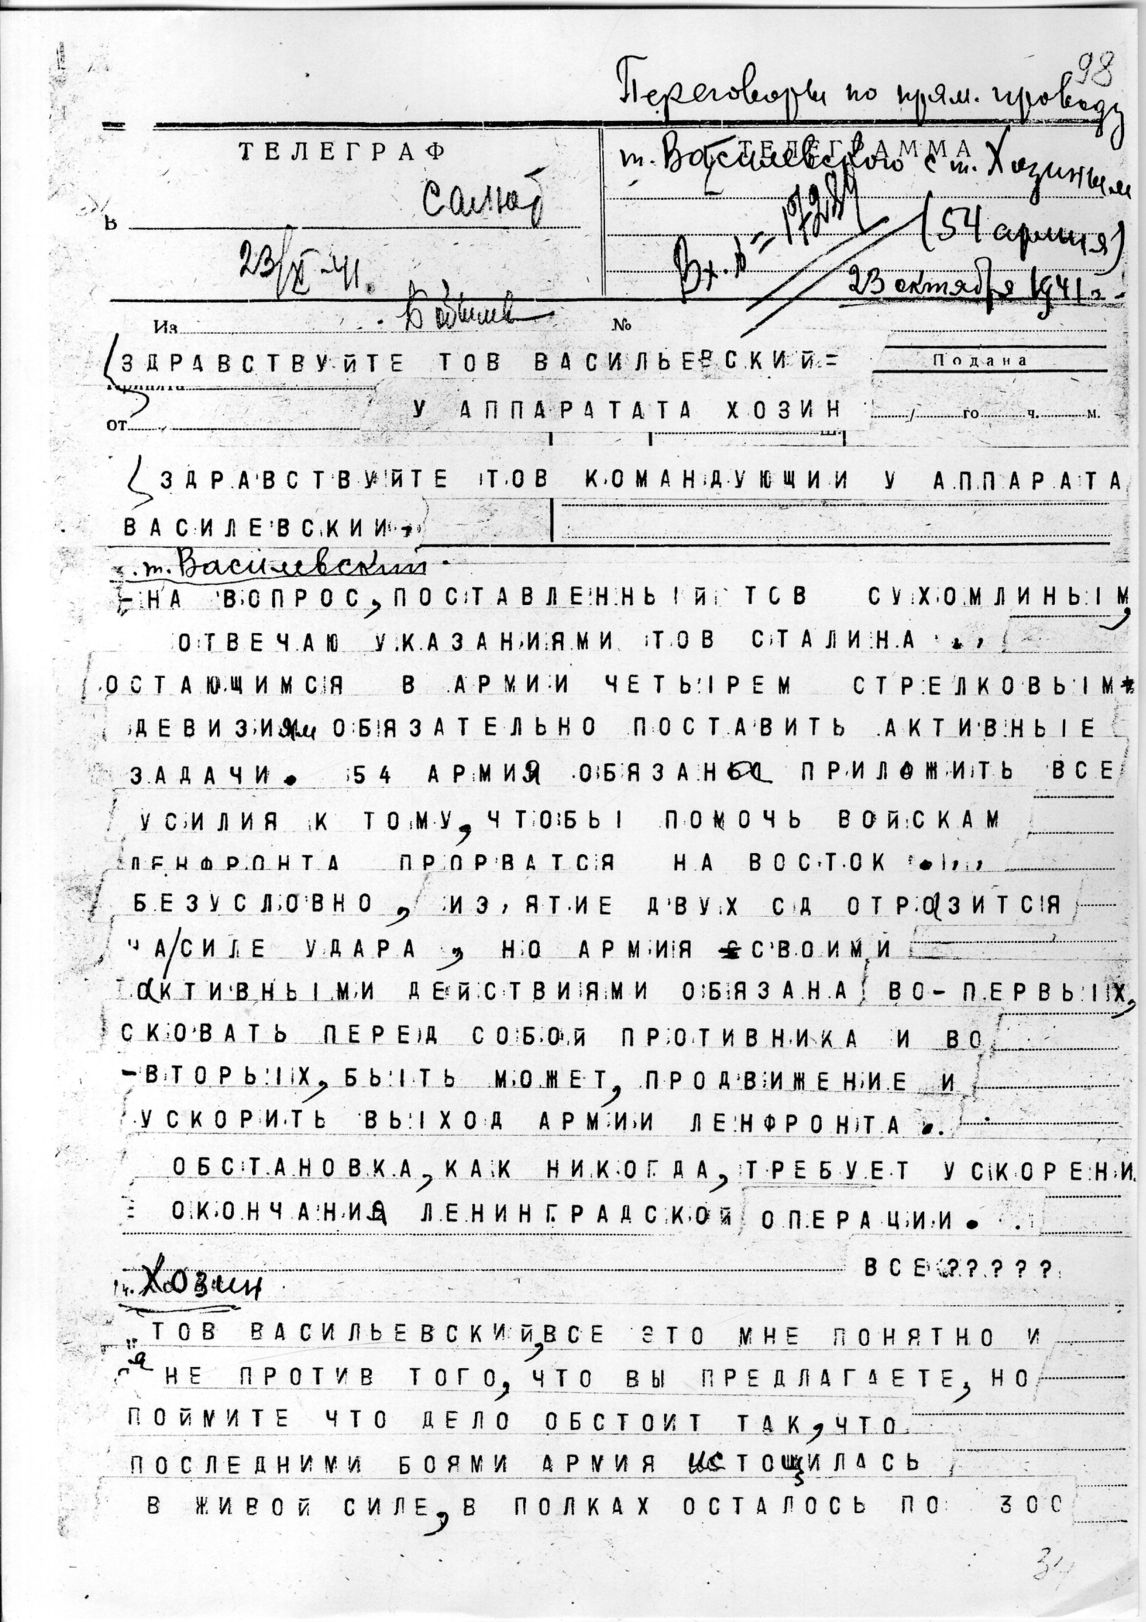 98
Переговоры по прям. проводу
ТЕЛЕГРАФ
ТЕЛЕГРАММА
т. Василевского с т. Хозиным
В
(54 армия)
Вх. № 17284
23/X-41.
23 октября 1941 г.
Из
№
ЗДРАВСТВУЙТЕ ТОВ ВАСИЛЬЕВСКИЙ=
Подана
У АППАРАТАТА ХОЗИН
от
го ч. м.
ЗДРАВСТВУЙТЕ ТОВ КОМАНДУЮЩИИ У АППАРАТА
ВАСИЛЕВСКИИ,
т. Василевский
-НА ВОПРОС, ПОСТАВЛЕННЫЙ ТОВ СУХОМЛИНЫМ,
ОТВЕЧАЮ УКАЗАНИЯМИ ТОВ СТАЛИНА .,
ОСТАЮЩИМСЯ В АРМИИ ЧЕТЫРЕМ СТРЕЛКОВЫМ
ДЕВИЗИям ОБЯЗАТЕЛЬНО ПОСТАВИТЬ АКТИВНЫЕ
ЗАДАЧИ. 54 АРМИЯ ОБЯЗАНа ПРИЛОЖИТЬ ВСЕ
УСИЛИЯ К ТОМУ, ЧТОБЫ ПОМОЧЬ ВОЙСКАМ
ЛЕНФРОНТА ПРОРВАТСЯ НА ВОСТОК .,,,
БЕЗУСЛОВНО, ИЗ,ЯТИЕ ДВУХ СД ОТРАЗИТСЯ
НА/СИЛЕ УДАРА, НО АРМИЯ СВОИМИ
АКТИВНЫМИ ДЕЙСТВИЯМИ ОБЯЗАНА ВО-ПЕРВЫХ,
СКОВАТЬ ПЕРЕД СОБОЙ ПРОТИВНИКА И ВО
-ВТОРЫХ, БЫТЬ МОЖЕТ, ПРОДВИЖЕНИЕ И
УСКОРИТЬ ВЫХОД АРМИИ ЛЕНФРОНТА.
ОБСТАНОВКА, КАК НИКОГДА, ТРЕБУЕТ УСКОРЕНИ
Е ОКОНЧАНИЯ ЛЕНИНГРАДСКОЙ ОПЕРАЦИИ.
ВСЕ?????
т. Хозин
ТОВ ВАСИЛЬЕВСКИЙ, ВСЕ ЭТО МНЕ ПОНЯТНО И
я НЕ ПРОТИВ ТОГО, ЧТО ВЫ ПРЕДЛАГАЕТЕ, НО
ПОЙМИТЕ ЧТО ДЕЛО ОБСТОИТ ТАК, ЧТО
ПОСЛЕДНИМИ БОЯМИ АРМИЯ ИСТОЩИЛАСЬ
В ЖИВОЙ СИЛЕ, В ПОЛКАХ ОСТАЛОСЬ ПО 300
34